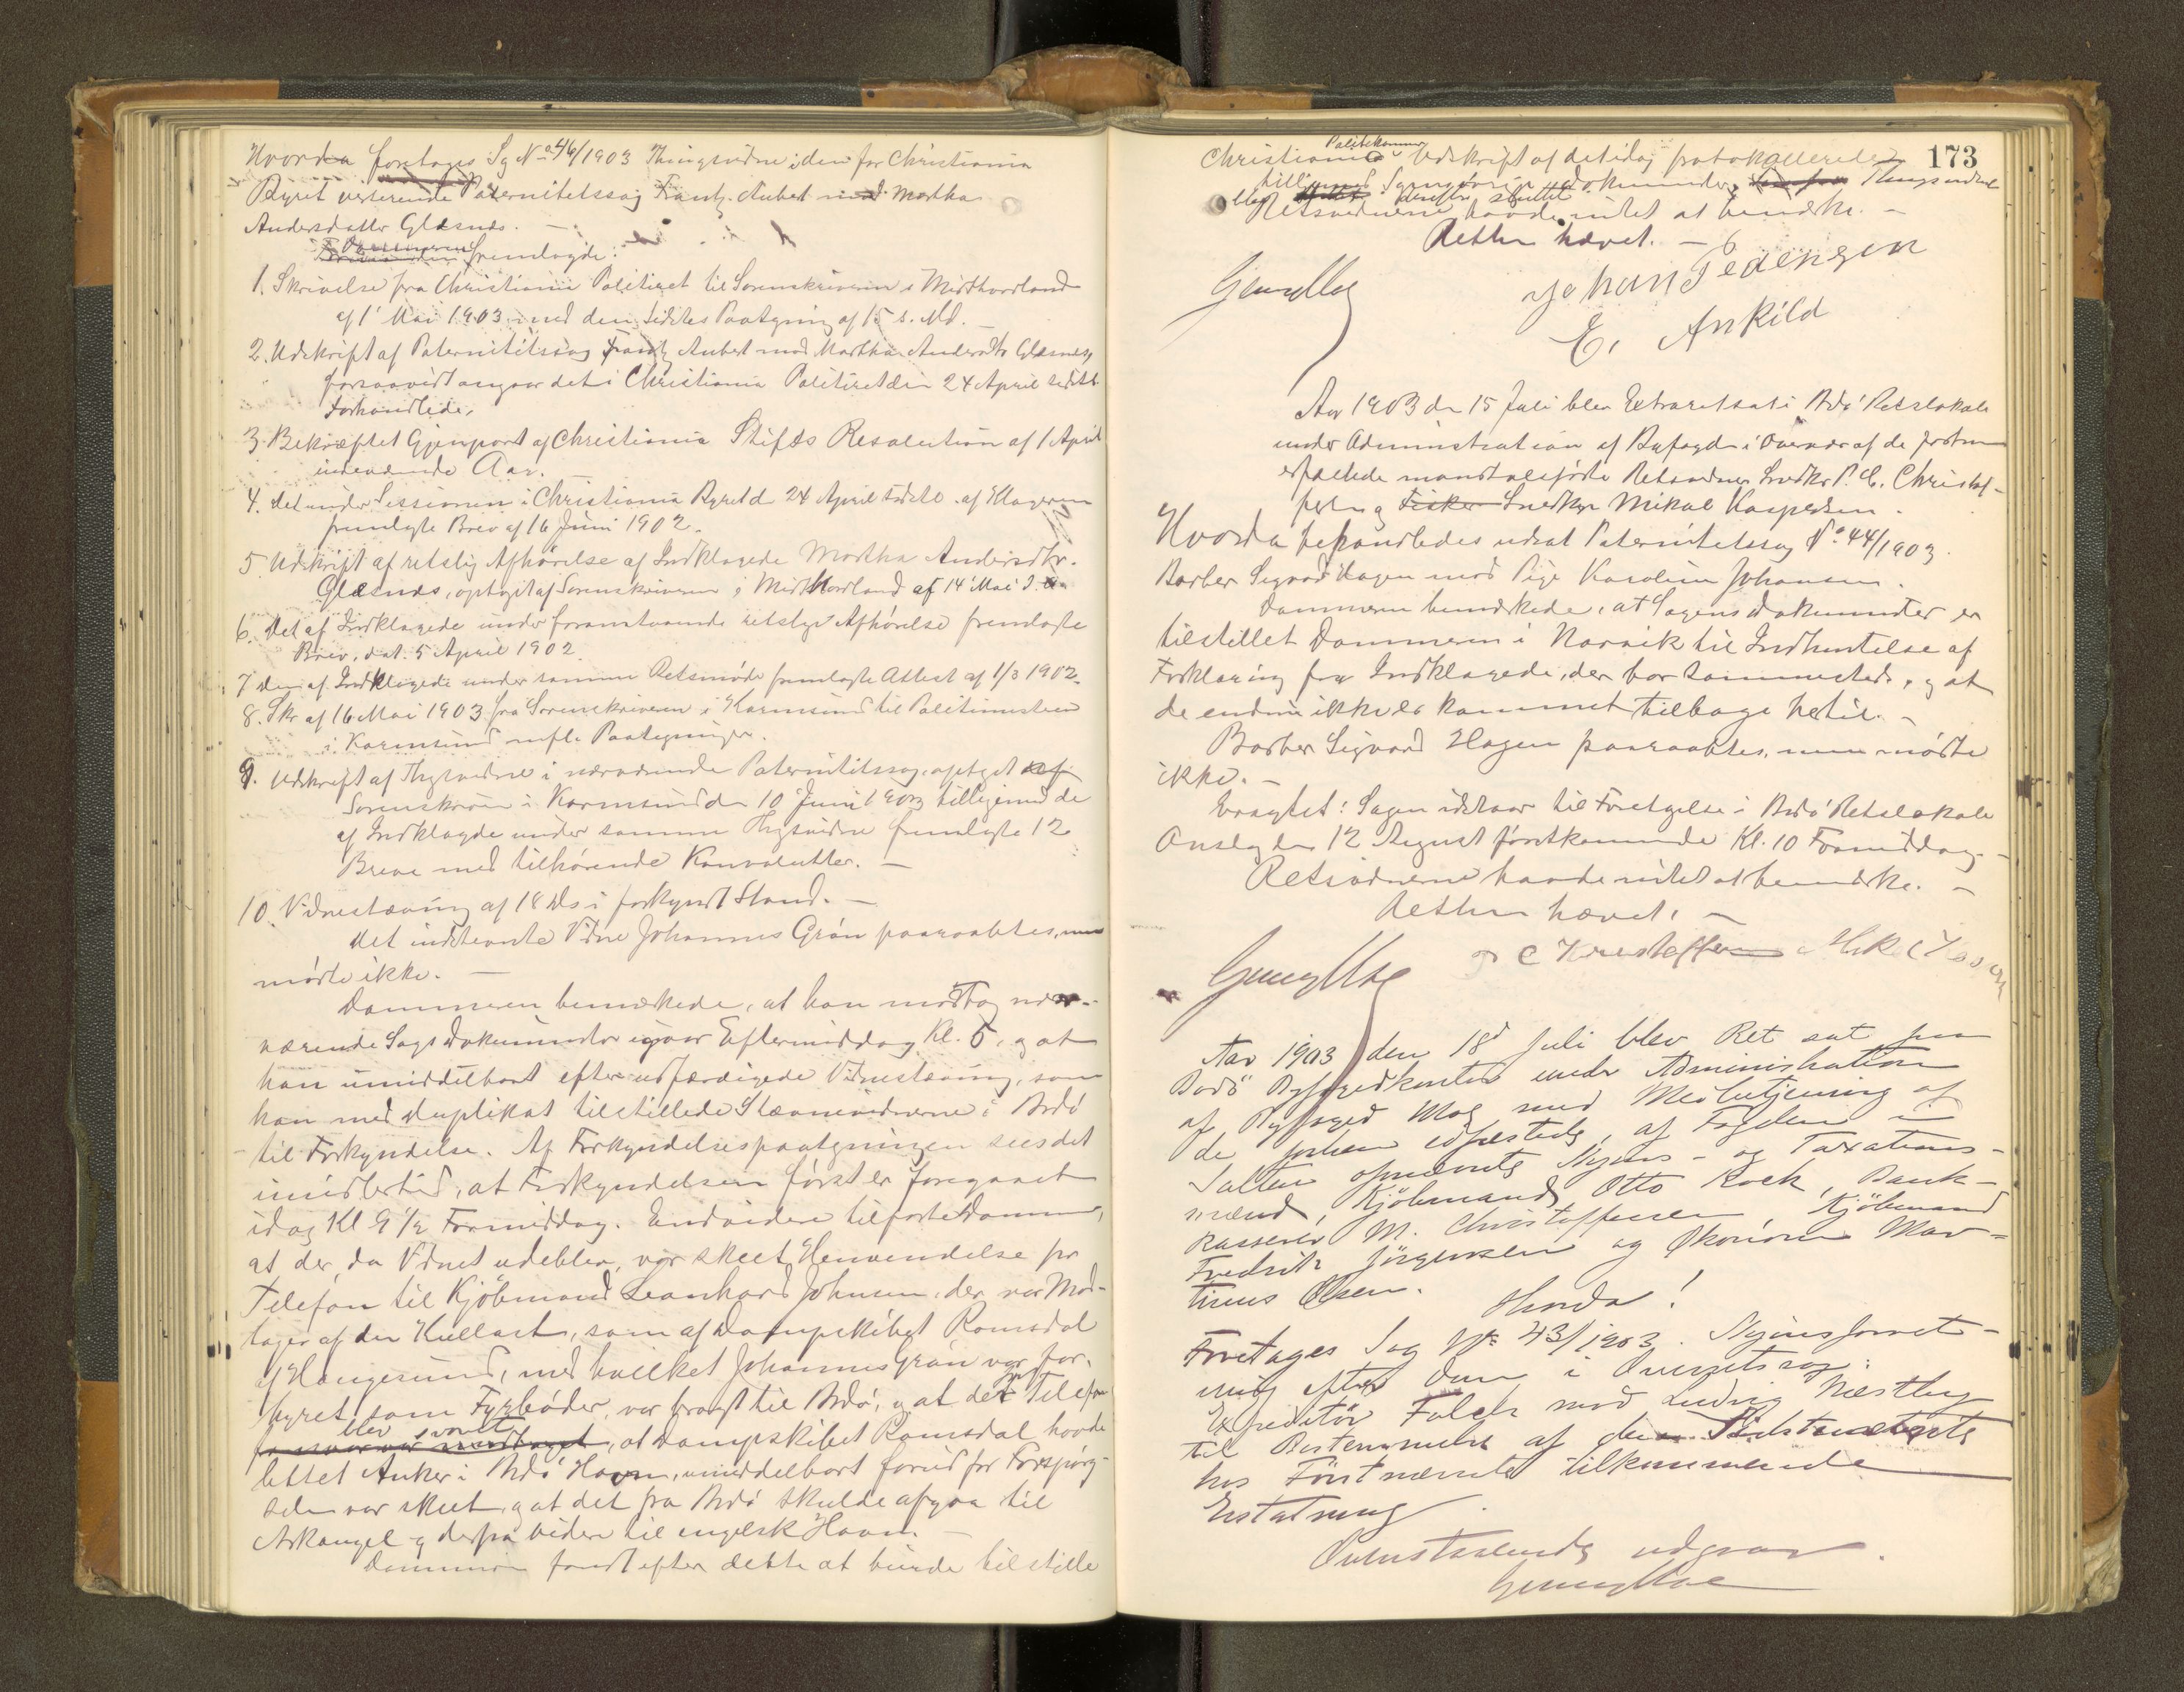 Hvorda foretoges Sg No 46/1903 Thingsvidne i den for Christiania
Byret verserende Paternitetssag Frantz Aubert mod Martha
Andersdatter Glæsnæs. —
Dommeren fremlagde:
1. Skrivelse fra Christiania Politiret til Sorenskriveren i Midthordland
af 1 Mai 1903 med den sidstes Paategning af 15 s. Md.
2. Udskrift af Paternitetssag Frantz Aubert mod Martha Andersdtr Glæsnæs,
forsaavidt angaar det i Christiania Politiret den 24 April sidstl.
Forhandlede.
3. Bekræftet Gjenpart af Christiania Stifts Resolution af 1 April
indeværende Aar.
4. Det under Sessionen i Christiania Byret d 24 April sidstl. af Klageren
fremlagte Brev af 16 Juni 1902.
5 Udskrift af retslig Afhørelse af Indklagede Martha Andersdtr.
Glæsnæs, optaget af Sorenskriveren i Midthordland af 14 Mai d. A.
6. Det af Indklagede under foranstaaende retslige Afhørelse fremlagte
Brev, dat. 5 April 1902.
7 Den af Indklagede under samme Retsmøde fremlagte Attest af 1/3 1902.
8. Skr af 16 Mai 1903 fra Sorenskriveren i Karmsund til Politimesteren
i Karmsund m fl. Paategninger.
9. Udskrift af Thgsvidne i nærværende Paternitetssag, optaget af
Sorenskriver i Karmsund den 10 Juni 1903 tilligemed de
af Indklagede under samme Thgsvidne fremlagte 12
Breve med tilhørende Konvolutter. —
10. Vidnestævning af 18 ds i forkyndt Stand. —
Det indstevnte Vidne Johannes Grøn paaraabtes, men
mødte ikke. —
Dommeren bemærkede, at han modtog nær-
værende Sags Dokumenter igaar Eftermiddag Kl. 5, og at
han umiddelbart efter udfærdigede Vidnestævning, som
han med Duplikat tilstillede Stævnevidnerne i Bodø
til Forkyndelse. Af Forkyndelsespaategningen sees det
imidlertid, at Forkyndelsen først er foregaaet
idag Kl 9 1/2 Formiddag. Endvidere tilførte Dommeren,
at der, da Vidnet udeblev, var skeet Henvendelse pr
Telefon til Kjøbmand Leonhard Johnsen, der var Mod-
tager af den Kullast, som af Dampskibet Romsdal
af Haugesund, med hvilket Johannes Grøn var for-
hyret som Fyrbøder, var bragt til Bodø, og at der pr Telefon
blev svaret, at Dampskibet Romsdal havde
lettet Anker i Bodø Havn, umiddelbart forud for Forspørg-
selen var skeet, og at det fra Bodø skulde afgaa til
Arkangel og derfra videre til engelsk Havn. —
Dommeren fandt efter dette at burde tilstille
173
Politikammer
Christiania Udskrift af det idag protokollerede
tilligemed Sagens øvrige Dokumenter, Thingsvidnet
blev derefter sluttet
Retsvidnerne havde intet at bemærke. —
Retten hævet. —
Johan Pedersen
E. Ankild
Aar 1903 den 15 Juli blev Extraret sat i Bodø Retslokale
under Administration af Byfogden i Overvær af de forhen
edfæstede mandtalsførte Retsvidner Snedker P. C. Christof-
fersen og Fisker Snedker Mikal Kaspersen.
Hvorda behandledes udsat Paternitetssag No. 44/1903.
Barber Sigvard Hagen mod Pige Karoline Johansen.
Dommeren bemærkede, at Sagens Dokumenter er
tilstillet Dommeren i Narvik til Indhentelse af
Forklaring fra Indklagede, der bor sammesteds, og at
de endnu ikke er kommet tilbage hertil. —
Barber Sigvard Hagen paaraabtes, men mødte
ikke. —
Eragtet: Sagen udstaar til Foretagelse i Bodø Retslokale
Onsdag den 12 August førstkommende Kl. 10 Formiddag. —
Retsvidnerne havde intet at bemærke. —
Retten hævet. —
P C Kristoffersen Mik Kasp
Aar 1903 den 18d Juli blev Ret sat paa
Bodø Byfogedkontor under Administration
af Byfoged Moe med Medbetjening af
de forhen edfæstede, af Fogden i
Salten opnævnte Skjøns- og Taxations-
mænd, Kjøbmand Otto Koch, Bank-
kasserer M. Christoffersen, Kjøbmand
Fredrik Jørgensen og Økonom Mar-
tinus Olsen.
Hvorda!
Foretages Sag No 43/1903. Skjønsforret-
ning efter Dom i Overretssag:
Expeditør Falch mod Ludvig Næstby
til Bestemmelse af den Sidstnævnte
hos Førstnævnte tilkommende
Erstatning.
Ovenstaaende udgaar.